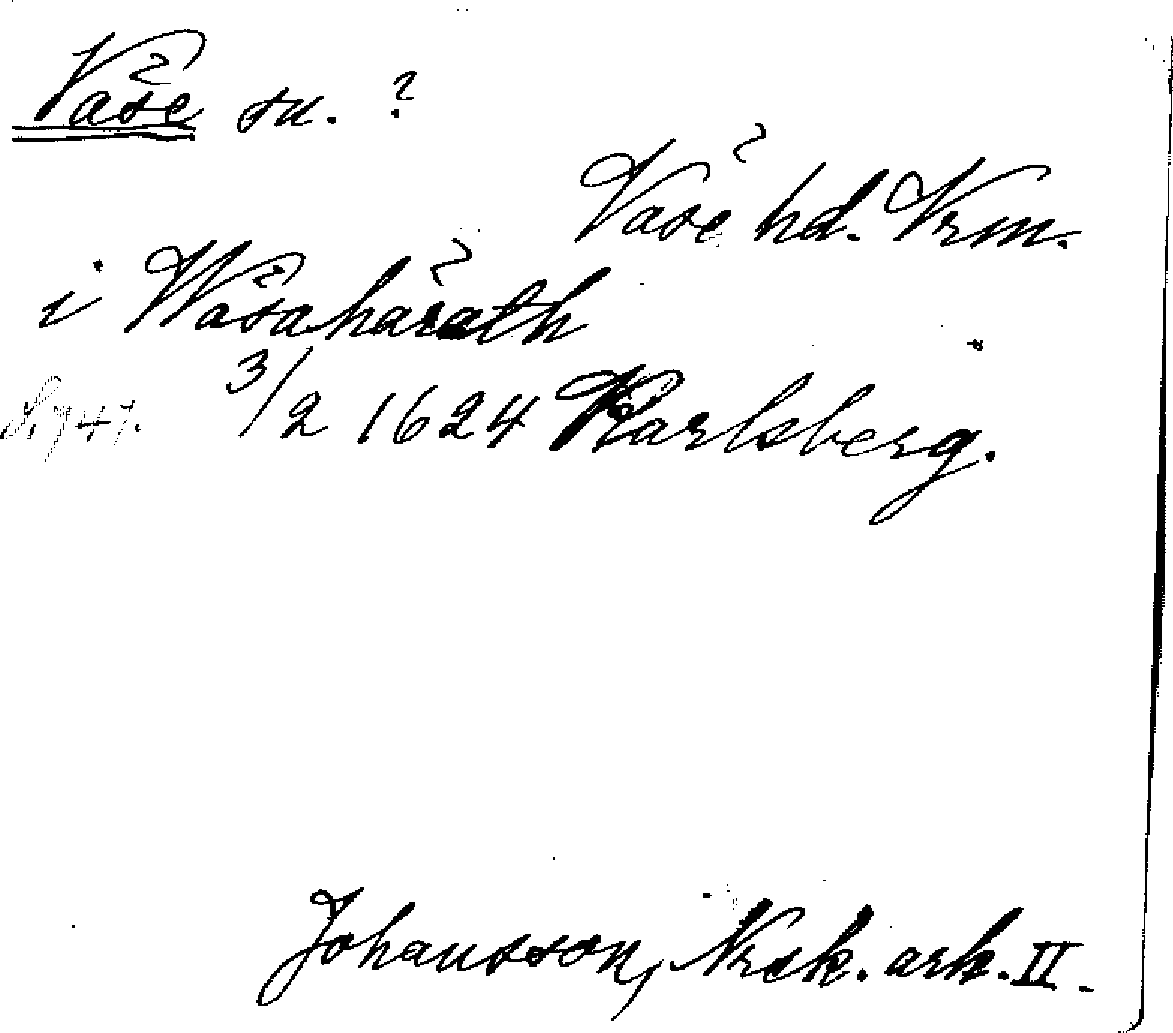 Väse sn. ?
Väse hd. Vrm.
i Wäsahäräth
3/2 1624 Karlsberg.
Johansson, Nrck. ark. II.